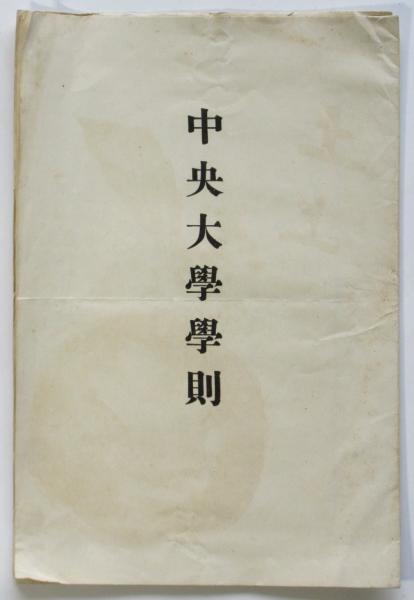 中央大學學則